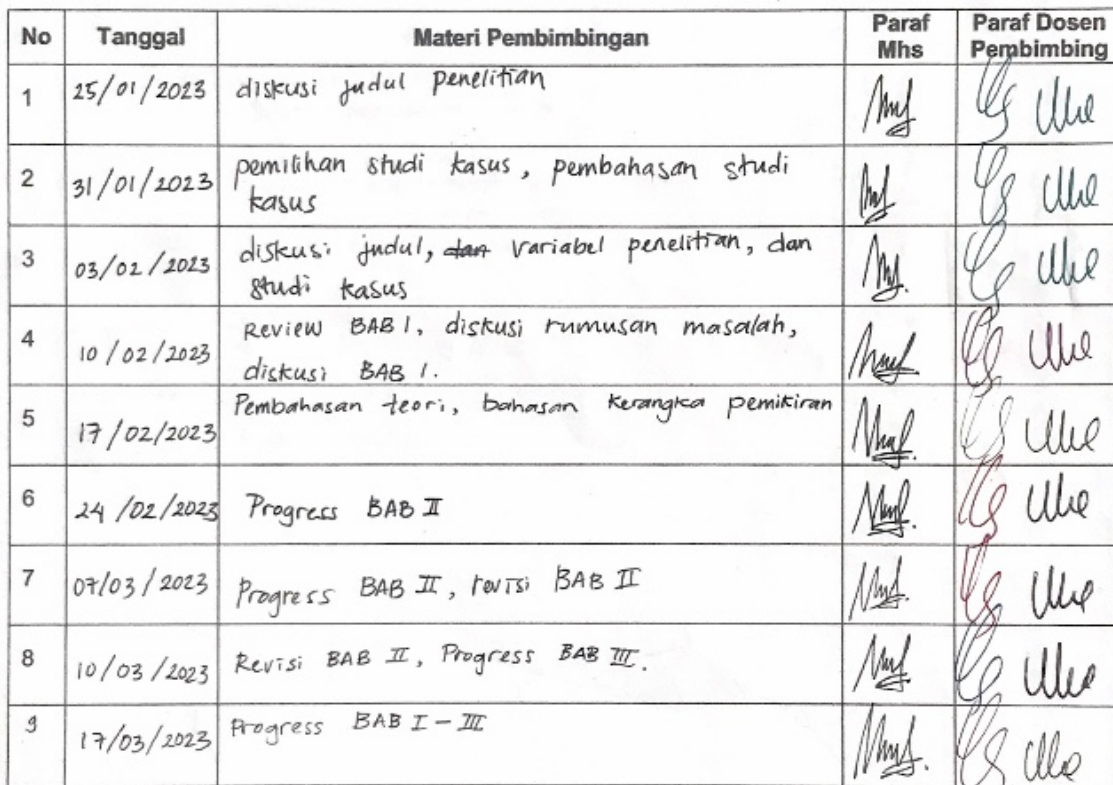 No Tanggal Materi Pembimbingan Paraf Mhs Paraf Dosen Pembimbing
1 25/01/2023 diskusi judul penelitian
2 31/01/2023 pemilihan studi kasus, pembahasan studi
kasus
3 03/02/2023 diskusi judul, dan variabel penelitian, dan
studi kasus
4 10/02/2023 Review BAB I, diskusi rumusan masalah,
diskusi BAB I.
5 17/02/2023 Pembahasan teori, bahasan kerangka pemikiran
6 24/02/2023 Progress BAB II
7 07/03/2023 Progress BAB II, revisi BAB II
8 10/03/2023 Revisi BAB II, Progress BAB III.
9 17/03/2023 Progress BAB I - III